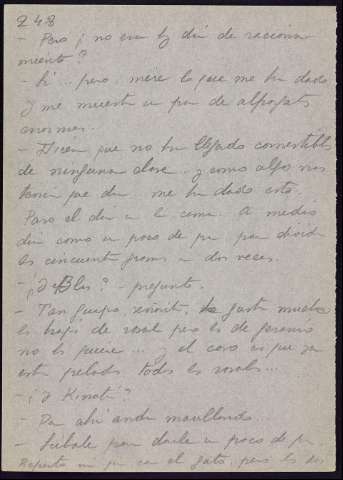 248
- Pero ¿no era hoy día de raciona-
miento?
- Sí... pero mire lo que me han dado
y me muestra un par de alpargatas
enormes...
- Dicen que no han llegado comestibles
de ninguna clase y como algo nos
tienen que dar... me ha dado esto.
Paso el día en la cama. A medio
día como un poco de pan, para dividir
los cincuenta gramos en dos veces.
- ¿Y Blas? - pregunto.
- Tan guapo, señorita, le gustan mucho
las hojas de rosal pero las de geranio
no las quiere... y el caso es que ya
están pelados todos los rosales...
- ¿Y Kinoti?
- Por ahí anda maullando...
- Súbale para darle un poco de pan
Reparto mi pan con el gato, pero los dos